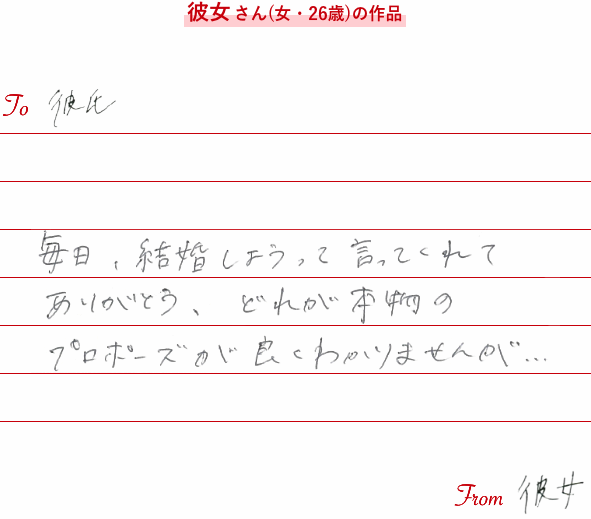 彼女さん(女・26歳)の作品
To 彼氏
毎日、結婚しようって言ってくれて
ありがとう、どれが本物の
プロポーズか良くわかりませんが…
From 彼女